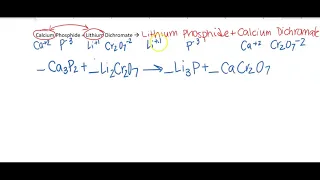 Calcium Phosphide + Lithium Dichromate → Lithium Phosphide + Calcium Dichromate
Ca+2 P-3 Li+1 Cr2O7-2 Li+1 P-3 Ca+2 Cr2O7-2
_ Ca3P2 + _Li2Cr2O7 → _Li3P + _CaCr2O7